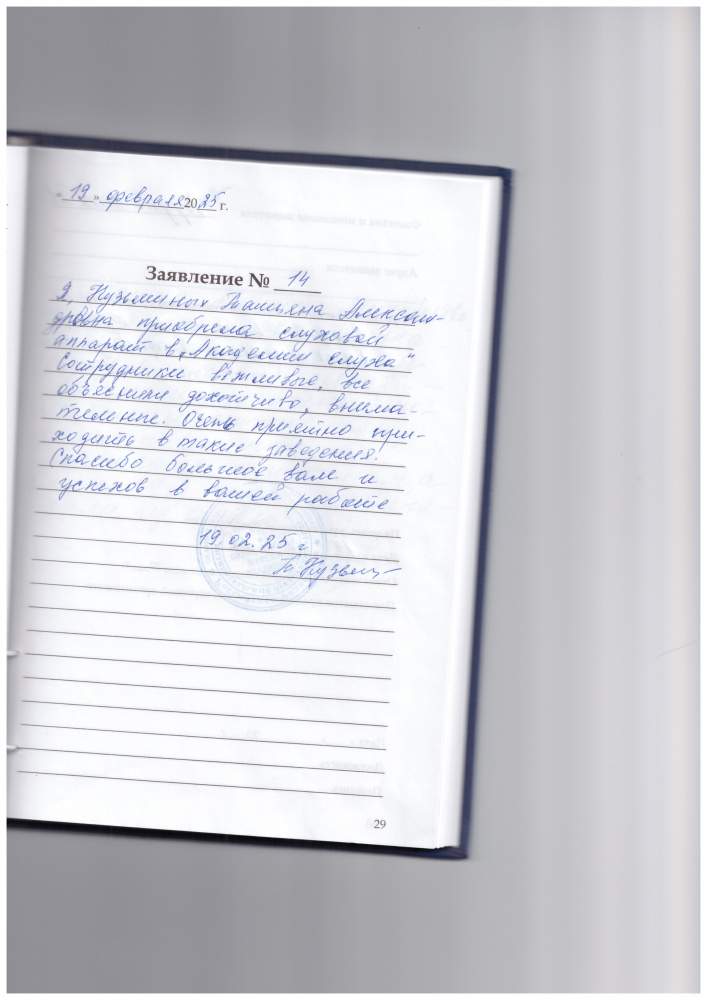 "19" февраля 2025 г.
Заявление № 14
Я, Кузьминых Татьяна Александ-
ровна приобрела слуховой
аппарат в „Академии слуха"
Сотрудники вежливые, все
объяснили доходчиво, внима-
тельные. Очень приятно при-
ходить в такие заведения.
Спасибо большое вам и
успехов в вашей работе
19.02.25 г
29